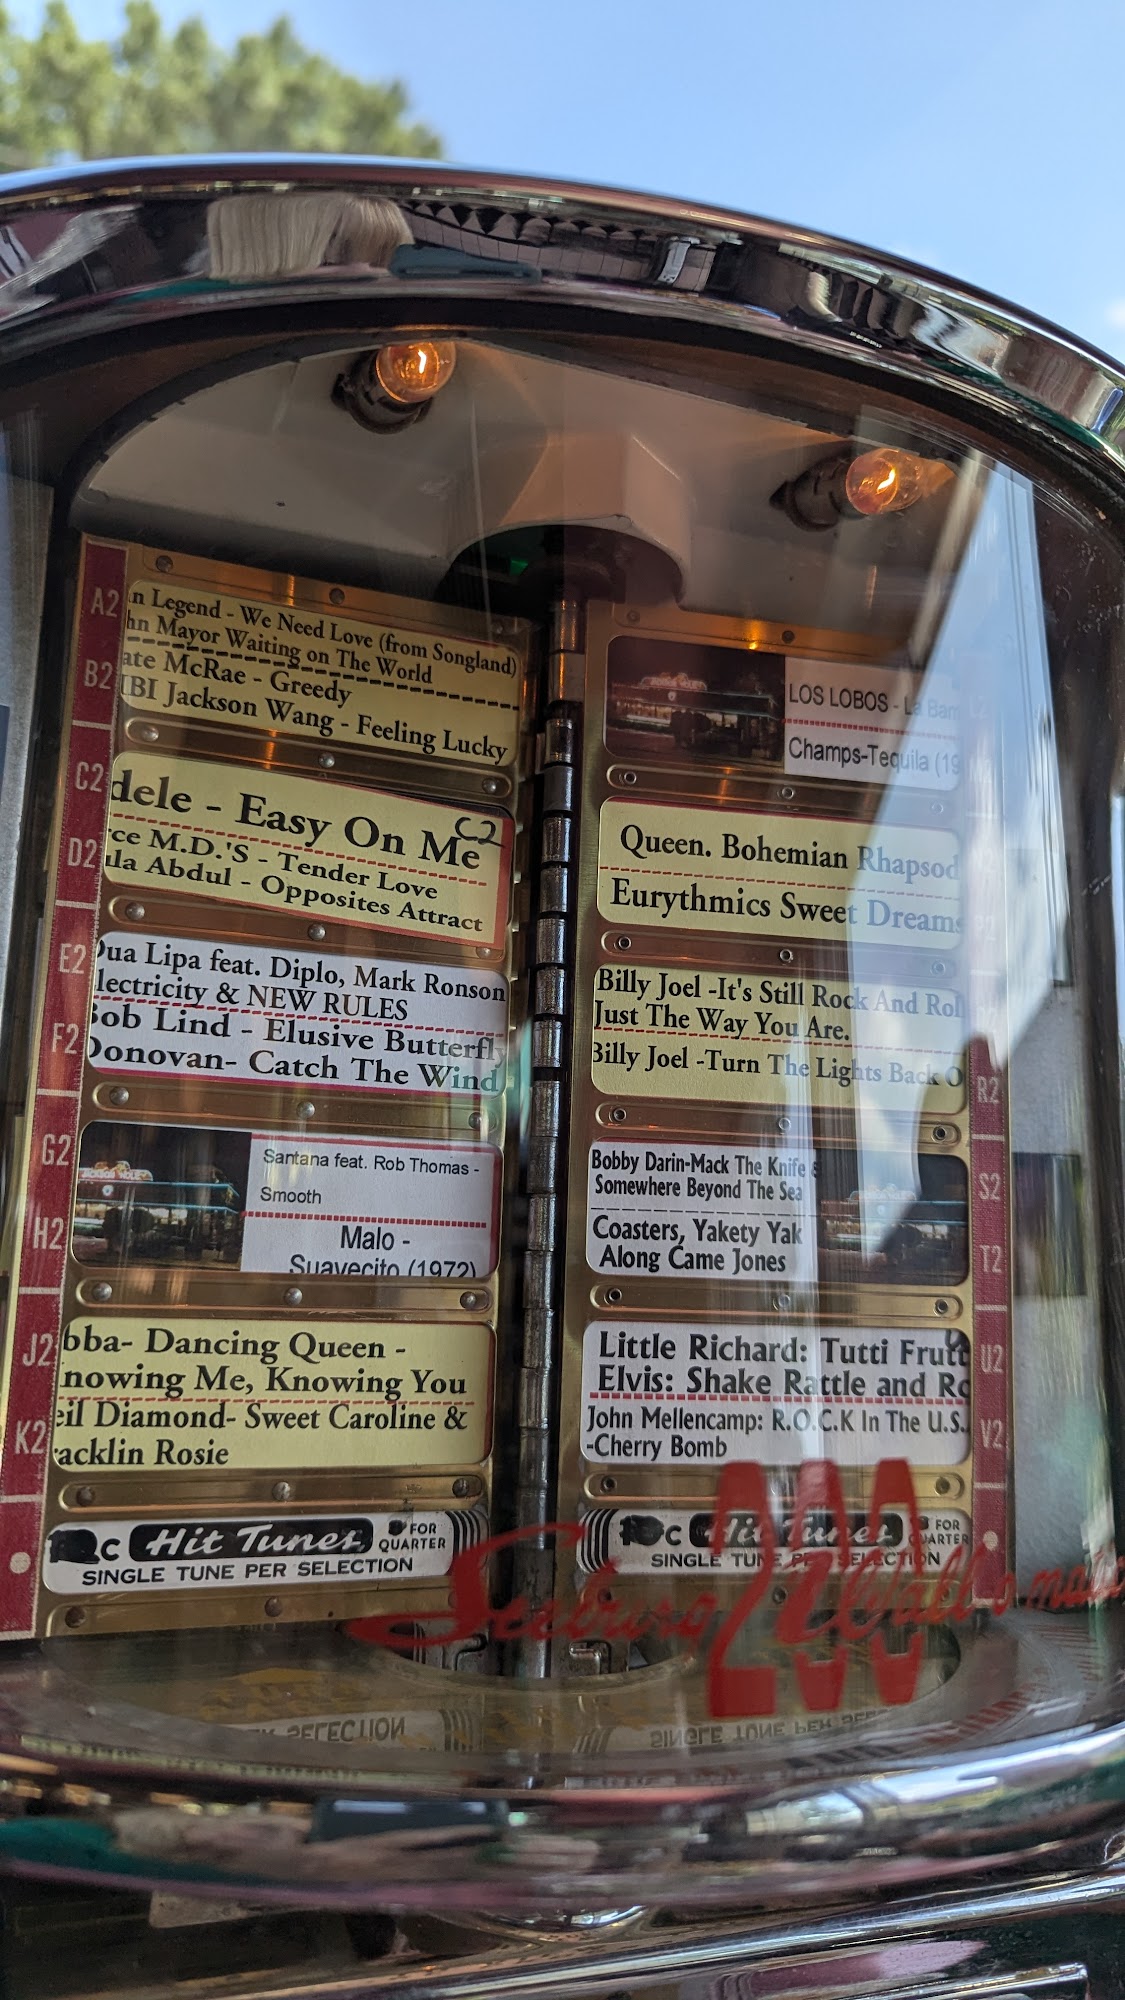 A2
n Legend - We Need Love (from Songland)
hn Mayor Waiting on The World
B2
ate McRae - Greedy
BI Jackson Wang - Feeling Lucky
C2
dele - Easy On Me
C2
D2
ce M.D.'S - Tender Love
la Abdul - Opposites Attract
E2
Dua Lipa feat. Diplo, Mark Ronson
lectricity & NEW RULES
F2
Bob Lind - Elusive Butterfly
Donovan- Catch The Wind
G2
Santana feat. Rob Thomas -
Smooth
H2
Malo -
Suavecito (1972)
J2
bba- Dancing Queen -
nowing Me, Knowing You
K2
eil Diamond- Sweet Caroline &
racklin Rosie
C Hit Tunes FOR QUARTER
SINGLE TUNE PER SELECTION
LOS LOBOS - La Bam
Champs-Tequila (19
Queen. Bohemian Rhapsod
Eurythmics Sweet Dreams
Billy Joel -It's Still Rock And Rol
Just The Way You Are.
Billy Joel -Turn The Lights Back O
R2
Bobby Darin-Mack The Knife &
Somewhere Beyond The Sea
S2
Coasters, Yakety Yak
Along Came Jones
T2
Little Richard: Tutti Frutt
Elvis: Shake Rattle and Ro
U2
John Mellencamp: R.O.C.K In The U.S.
-Cherry Bomb
V2
C Hit Tunes FOR QUARTER
SINGLE TUNE PER SELECTION
Seeburg 200 Wall-o-matic
SELECTION
SINGLE TUNE PER SELE